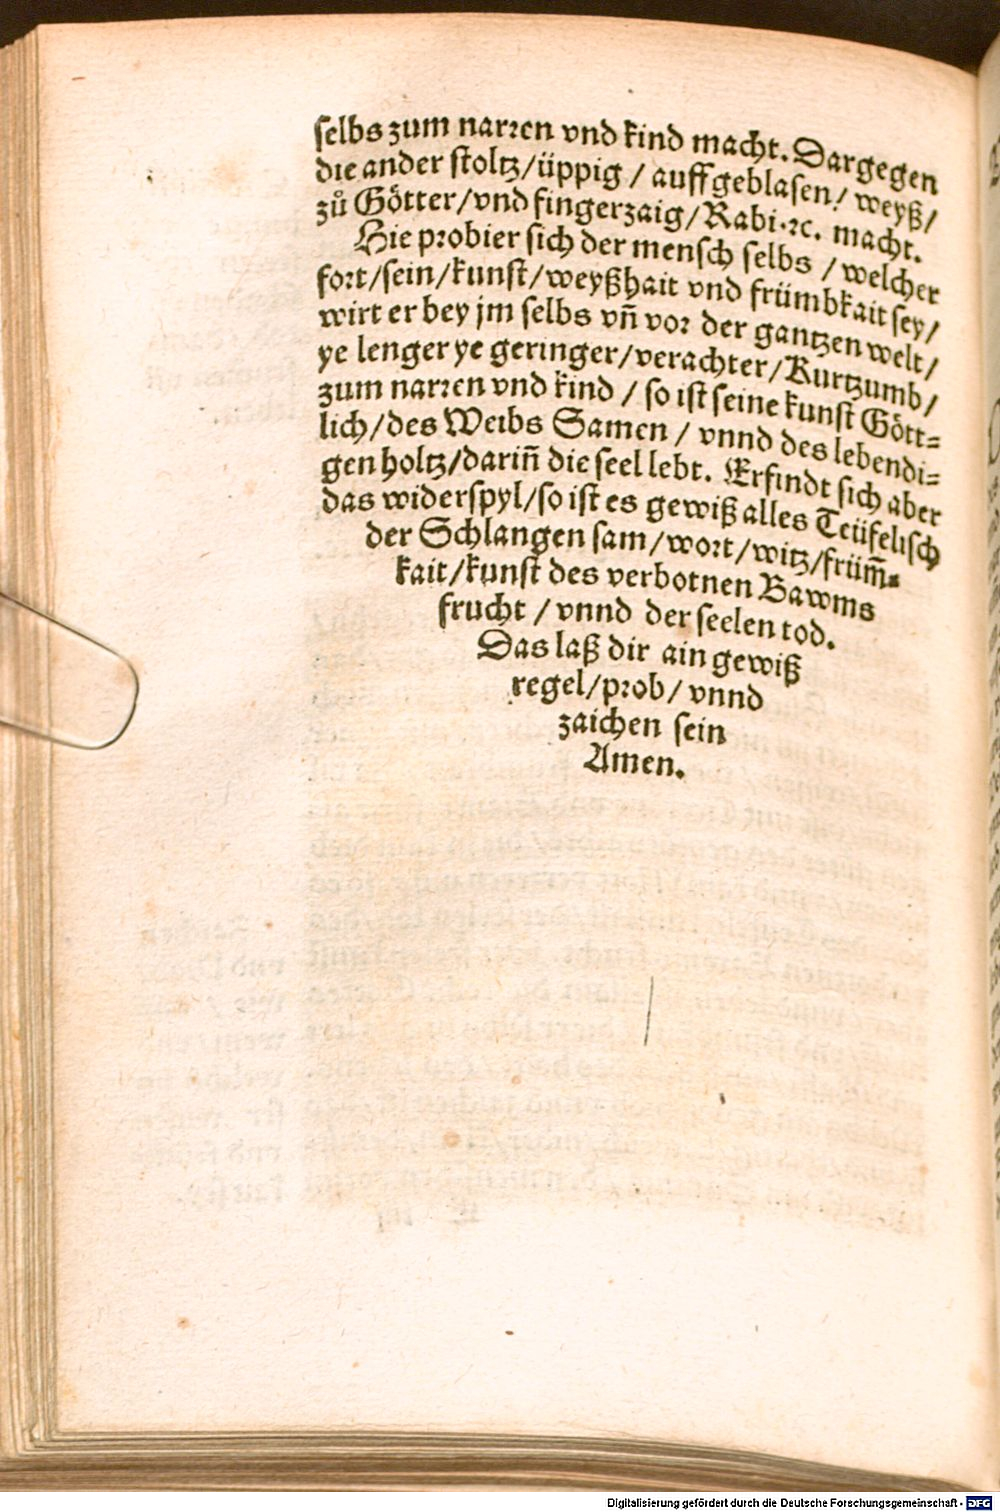 selbs zum narren vnd kind macht. Dargegen
die ander stoltz/üppig / auffgeblasen/ weyß/
zů Götter/vnd fingerzaig/Rabi.ꝛc. macht.
Hie probier sich der mensch selbs / welcher
fort/sein/kunst/weyßhait vnd frümbkait sey/
wirt er bey jm selbs vñ vor der gantzen welt/
ye lenger ye geringer/verachter/Kurtzumb/
zum narren vnd kind / so ist seine kunst Gött⸗
lich/des Weibs Samen / vnnd des lebendi⸗
gen holtz/dariñ die seel lebt. Erfindt sich aber
das widerspyl/so ist es gewiß alles Teüfelisch
der Schlangen sam/wort/witz/früm̃⸗
kait/kunst des verbotnen Bawms
frucht / vnnd der seelen tod.
Das laß dir ain gewiß
regel/prob/ vnnd
zaichen sein
Amen.
Digitalisierung gefördert durch die Deutsche Forschungsgemeinschaft - DFG